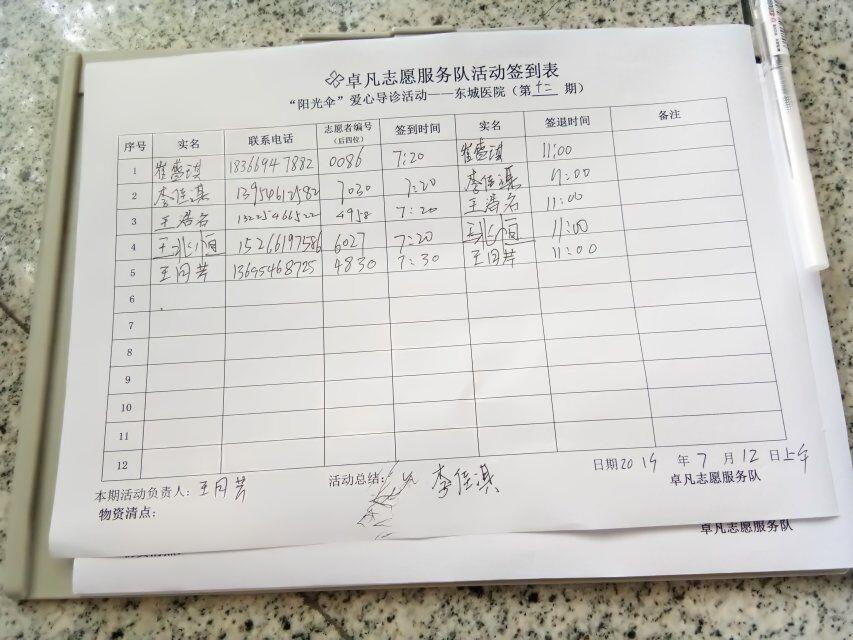 卓凡志愿服务队活动签到表
“阳光伞”爱心导诊活动——东城医院（第十二期）
序号 实名 联系电话 志愿者编号（后四位） 签到时间 实名 签退时间 备注
1 崔盛琪 18366947882 0086 7:20 崔盛琪 11:00
2 李佳淇 13954612582 7030 7:20 李佳淇 11:00
3 王浩名 13225466522 4958 7:20 王浩名 11:00
4 王兆恒 15266197586 6027 7:20 王兆恒 11:00
5 王同芳 13695468725 4830 7:30 王同芳 11:00
6
7
8
9
10
11
12
日期2019年7月12日上午
本期活动负责人：王同芳 活动总结： 李佳淇 卓凡志愿服务队
物资清点：
卓凡志愿服务队